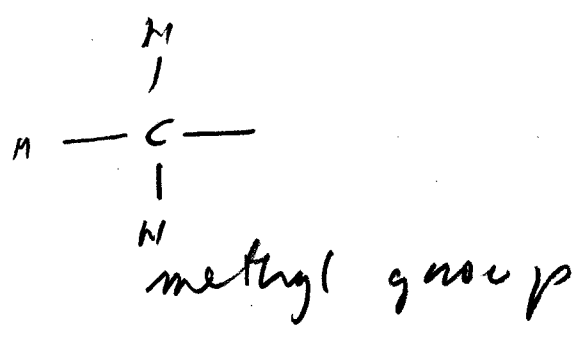 H
H — C —
H
methyl group